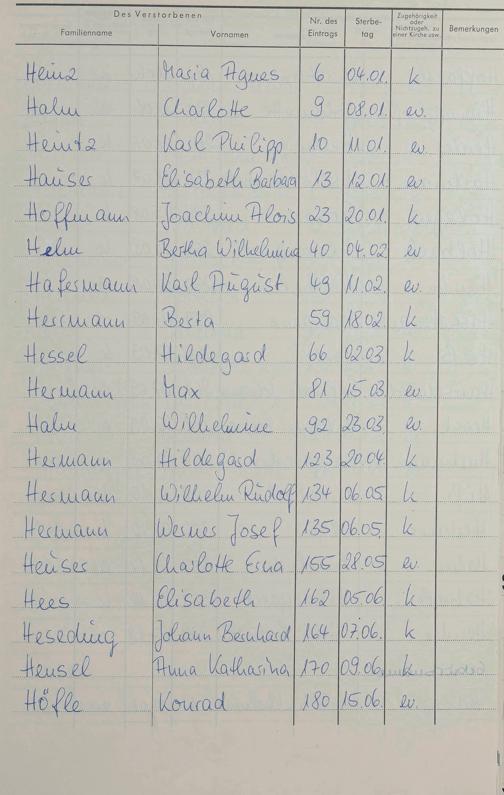 Des Verstorbenen Nr. des Eintrags Sterbe-tag Zugehörigkeit oder Nichtzugeh. zu einer Kirche usw. Bemerkungen
Familienname Vornamen
Heinz Maria Agnes 6 04.01. k
Hahn Charlotte 9 08.01. ev.
Heintz Karl Philipp 10 11.01. ev
Hauser Elisabeth Barbara 13 12.01. ev
Hoffmann Joachim Alois 23 20.01. k
Helm Bertha Wilhelmina 40 04.02 ev
Hafermann Karl August 49 11.02. ev.
Herrmann Berta 59 18.02. k
Hessel Hildegard 66 02.03. k
Hermann Max 81 15.03. ev.
Hahn Wilhelmine 92 23.03. ev.
Hermann Hildegard 123 20.04. k
Hermann Wilhelm Rudolf 134 06.05. k
Hermann Werner Josef 135 06.05. k
Heuser Charlotte Erna 155 28.05 ev.
Hees Elisabeth 162 05.06 k
Heseding Johann Bernhard 164 07.06. k
Hensel Anna Katharina 170 09.06. k
Höfle Konrad 180 15.06. ev.